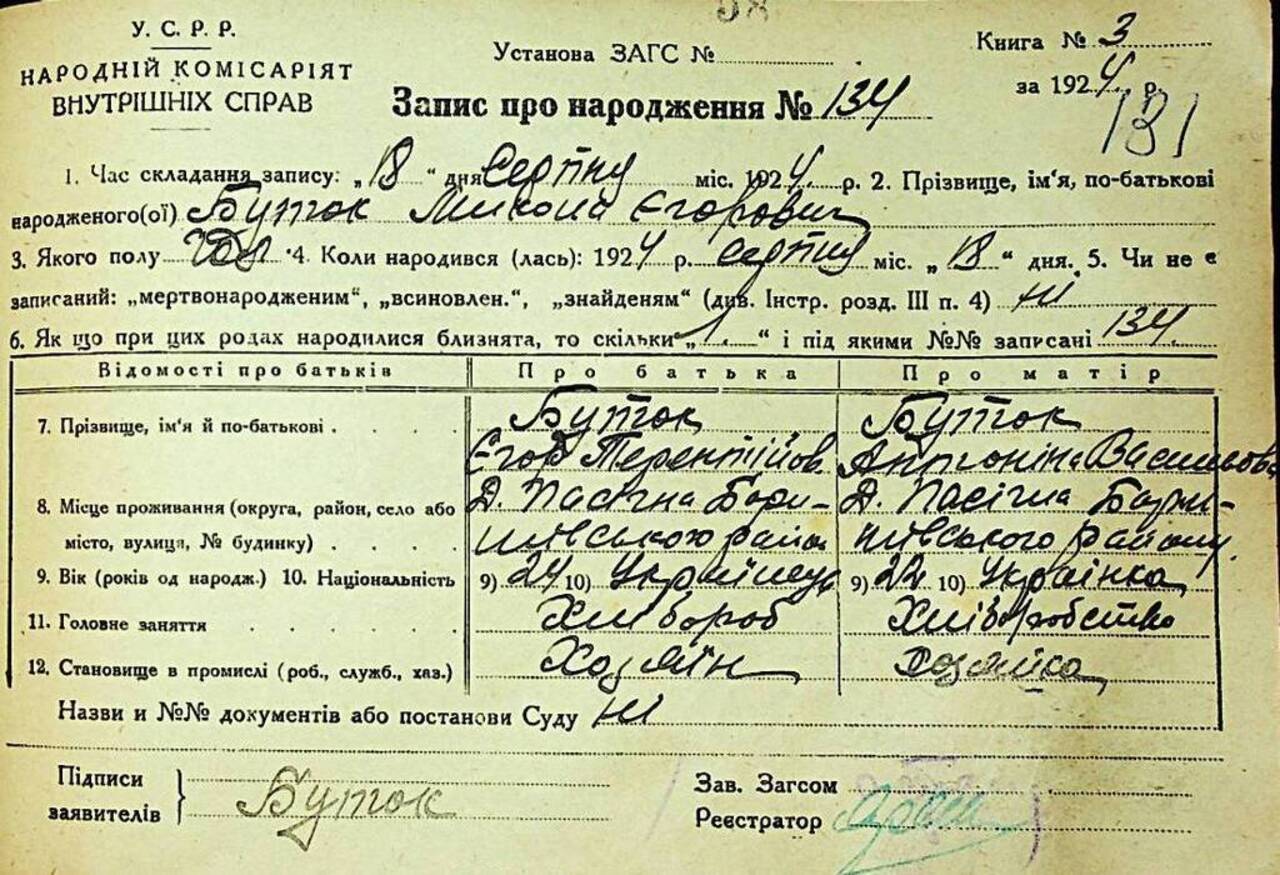 У. С. Р. Р.
НАРОДНІЙ КОМІСАРІЯТ
ВНУТРІШНІХ СПРАВ
Установа ЗАГС №
Книга № 3
за 1924 р.
Запис про народження № 134
131
1. Час складання запису: „18“ дня Серпня міс. 1924 р. 2. Прізвище, ім'я, по-батькові
народженого(ої) Буток Микола Єгорович
3. Якого полу Чол 4. Коли народився (лась): 1924 р. серпня міс. „18“ дня. 5. Чи не є
записаний: „мертвонародженим“, „всиновлен.“, „знайденям“ (див. Інстр. розд. III п. 4) ні
6. Як що при цих родах народилися близнята, то скільки „1“ і під якими №№ записані 134
Відомості про батьків Про батька Про матір
7. Прізвище, ім'я й по-батькові Буток Буток
Єгор Терентійов Антоніна Васильовна
8. Місце проживання (округа, район, село або Д. Пасічна Бори- Д. Пасічна Бори-
місто, вулиця, № будинку) шівського район шівського району
9. Вік (років од народж.) 10. Національність 9) 24 10) Українець 9) 22 10) Українка
11. Головне заняття Хлібороб Хліборобство
12. Становище в промислі (роб., служб., хаз.) Хозяїн Хозяйка
Назви и №№ документів або постанови Суду ні
Підписи
заявителів Буток
Зав. Загсом
Реєстратор